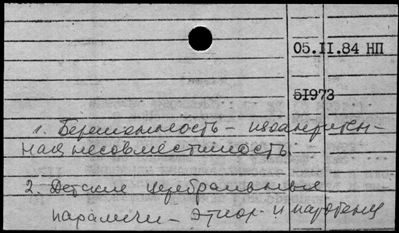 05.II.84 НП
51973
1. Беременность - изоантиген-
ная несовместимость
2. Детские церебральные
параличи - этиол. и патогенез